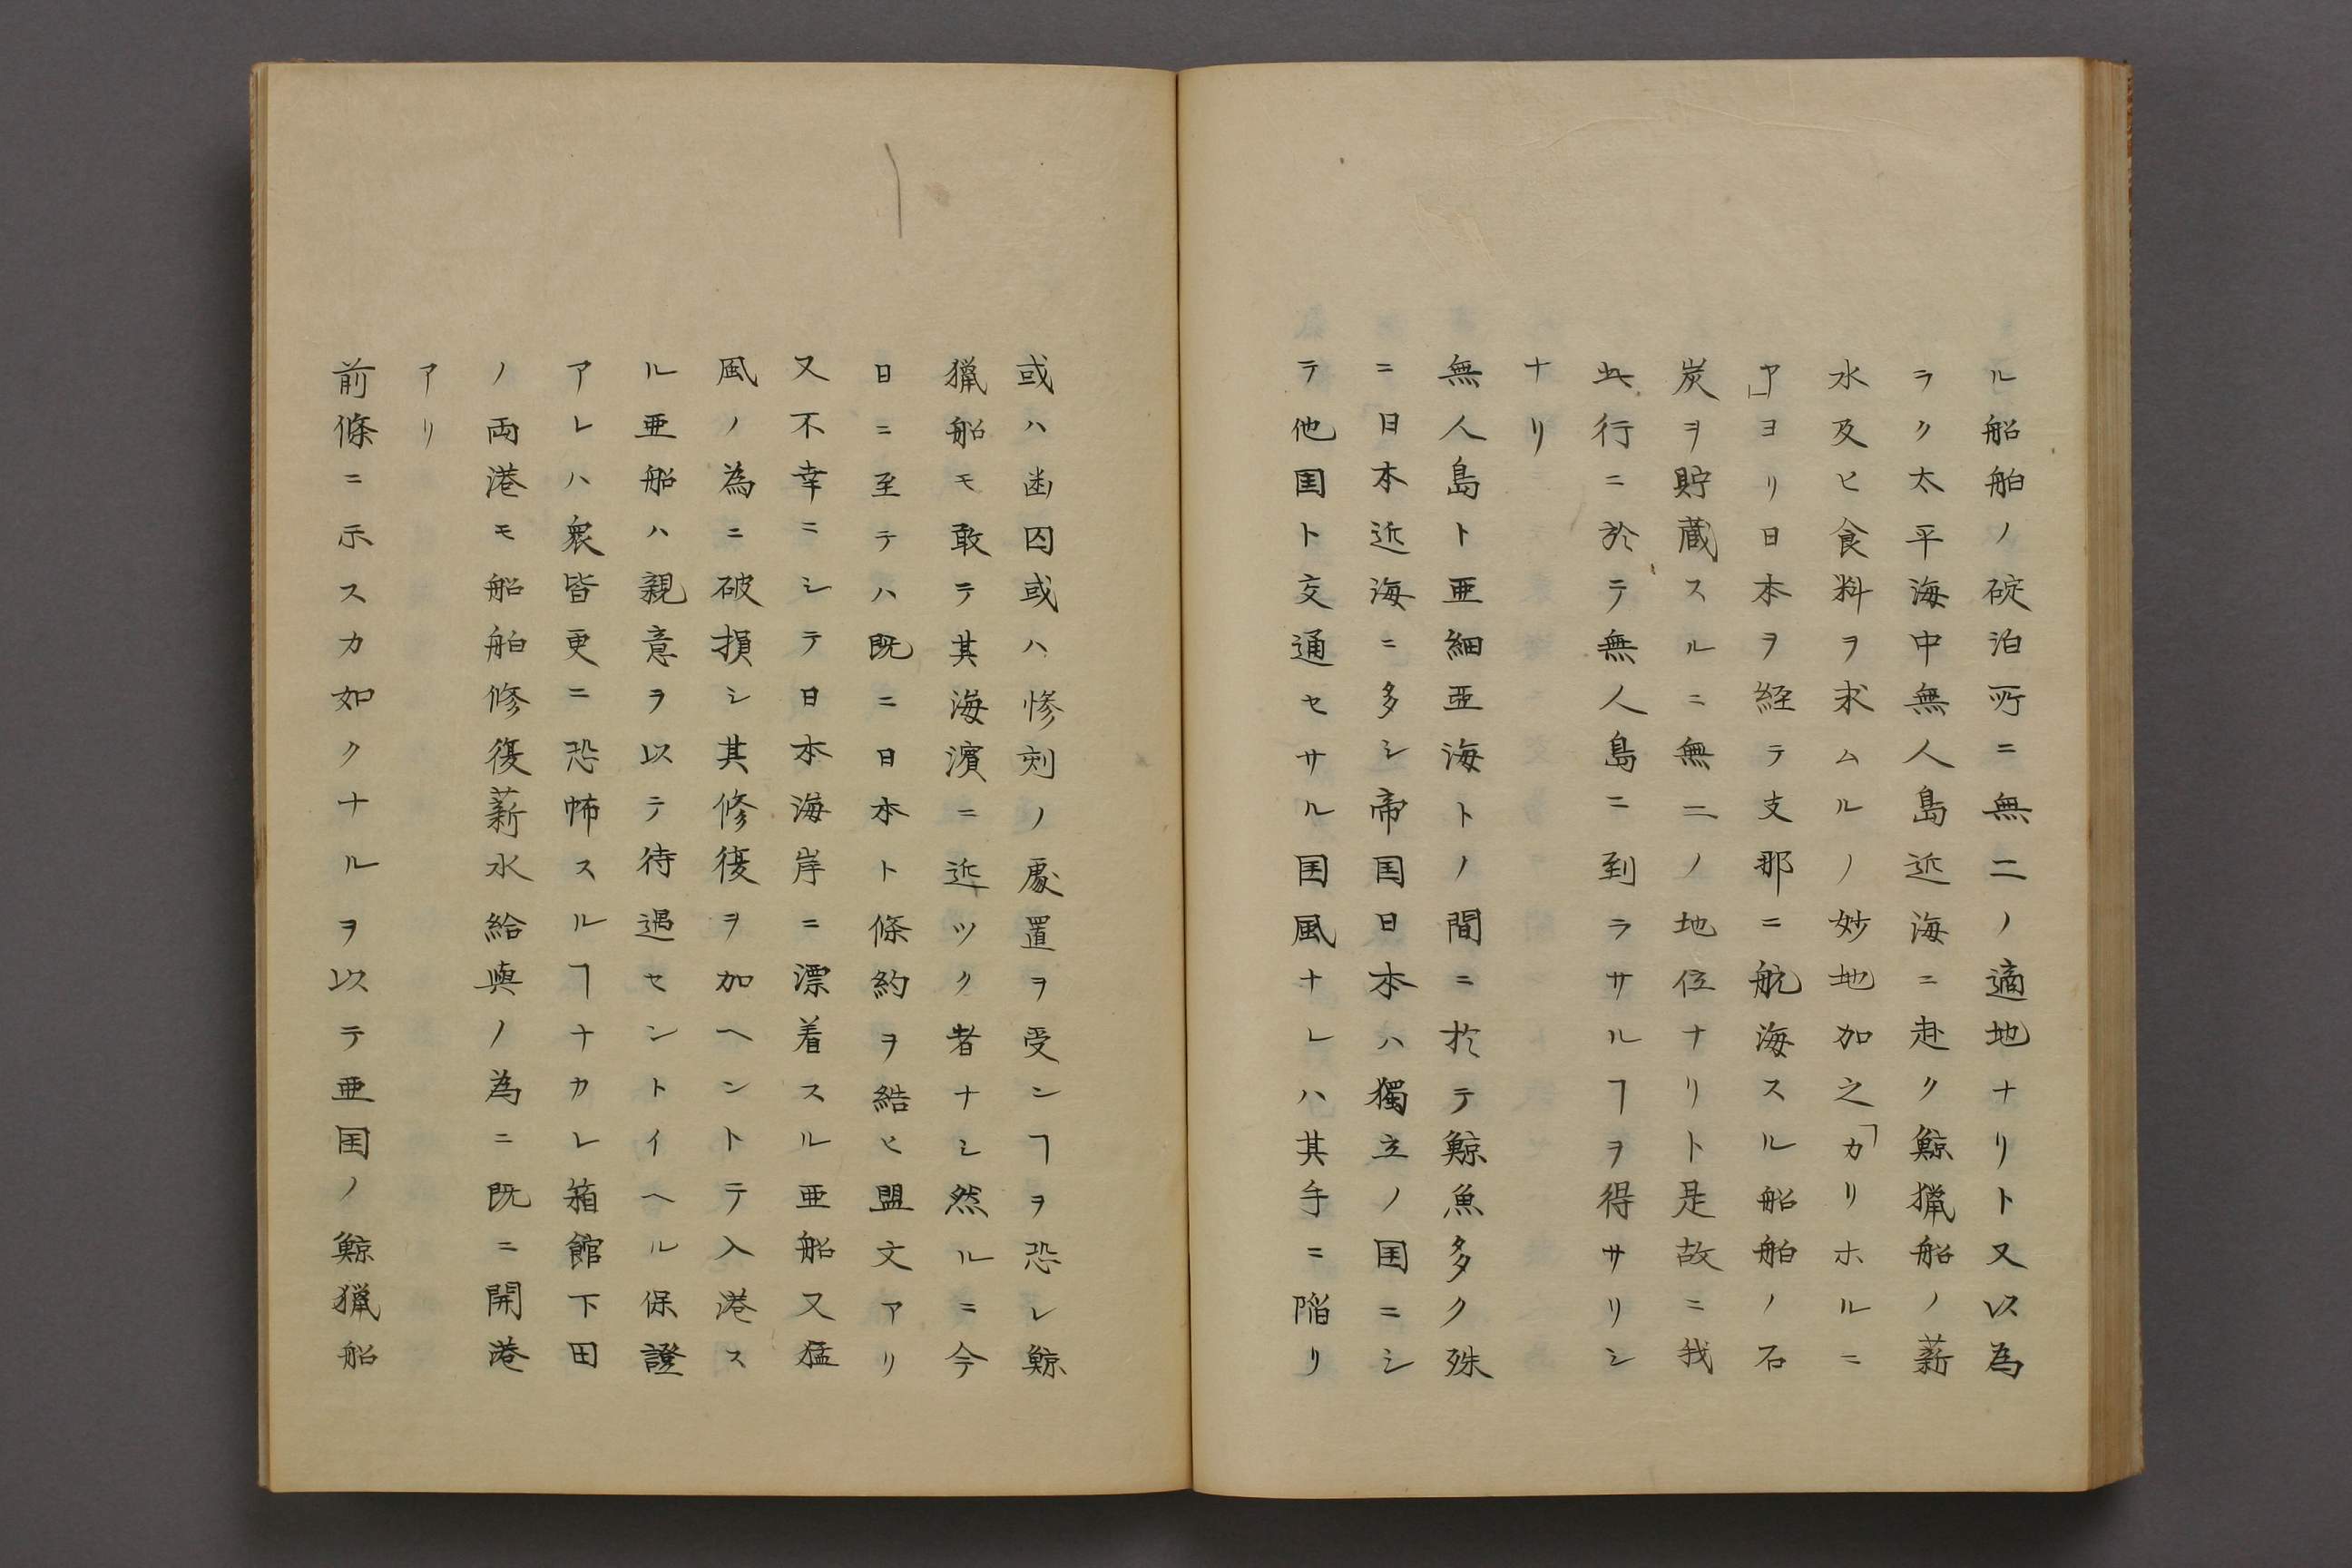 ル船舶ノ碇泊所ニ無二ノ適地ナリト又以為
ラク太平海中無人島近海ニ赴ク鯨猟船ノ薪
水及ヒ食料ヲ求ムルノ妙地加之「カリホルニ
ヤ」ヨリ日本ヲ経テ支那ニ航海スル船舶ノ石
炭ヲ貯蔵スルニ無二ノ地位ナリト是故ニ我
此行ニ於テ無人島ニ到ラサルヿヲ得サリシ
ナリ
無人島ト亜細亜海トノ間ニ於テ鯨魚多ク殊
ニ日本近海ニ多シ帝国日本ハ獨立ノ国ニシ
テ他国ト交通セサル国風ナレハ其手ニ陥リ
或ハ幽囚或ハ惨刻ノ處置ヲ受ンヿヲ恐レ鯨
猟船モ敢テ其海濱ニ近ツク者ナシ然ルニ今
日ニ至テハ既ニ日本ト條約ヲ結ヒ盟文アリ
又不幸ニシテ日本海岸ニ漂着スル亜船又猛
風ノ為ニ破損シ其修復ヲ加ヘントテ入港ス
ル亜船ハ親意ヲ以テ待遇セントイヘル保證
アレハ衆皆更ニ恐怖スルヿナカレ箱館下田
ノ両港モ船舶修復薪水給與ノ為ニ既ニ開港
アリ
前條ニ示スカ如クナルヲ以テ亜国ノ鯨猟船